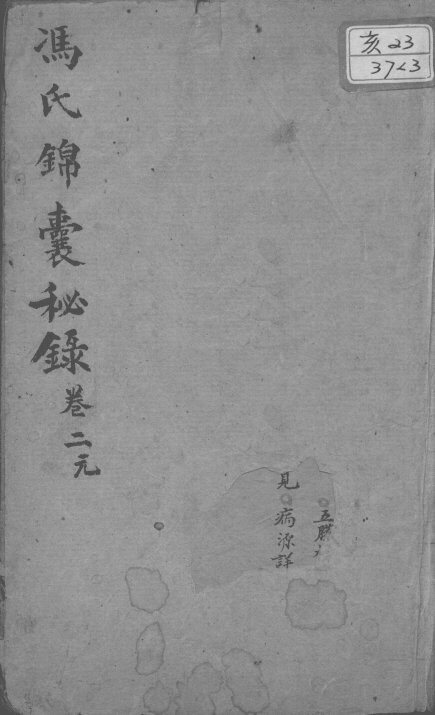 亥 23
37<3
馮氏錦囊秘錄 卷二元
五臟
見病源詳